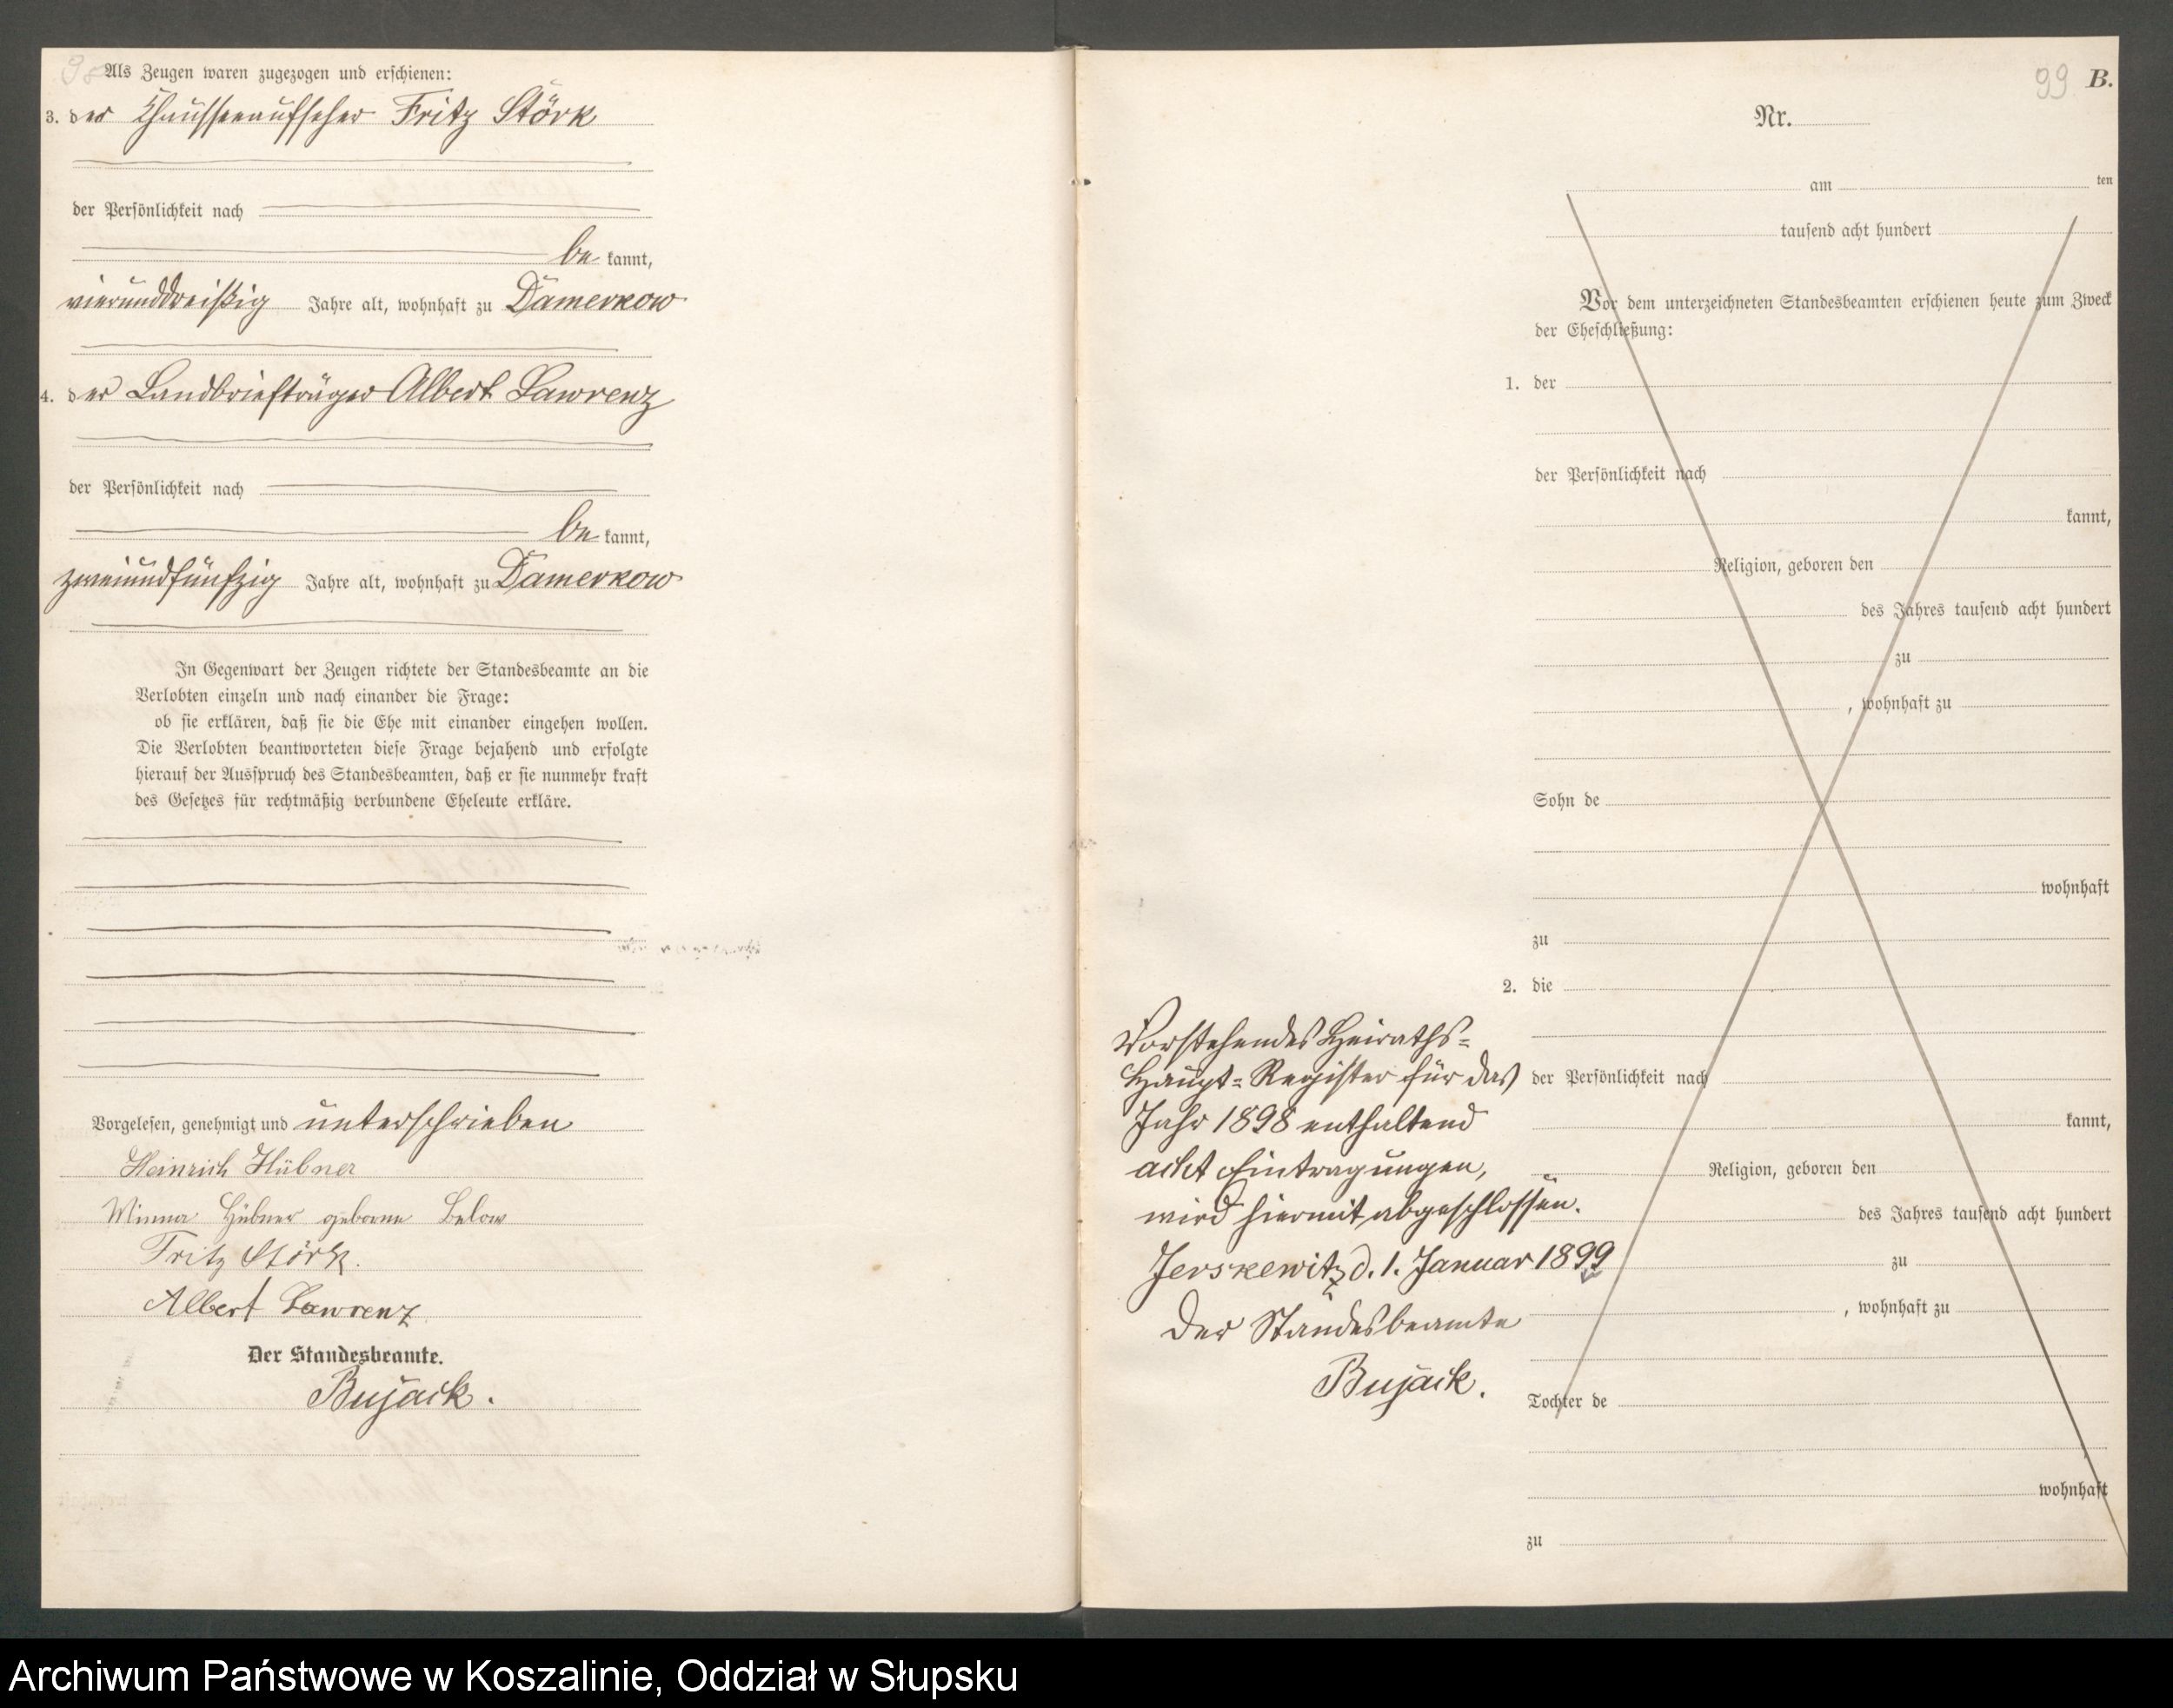 98
Als Zeugen waren zugezogen und erschienen:
3. der Chausseeaufseher Fritz Störk
der Persönlichkeit nach
be kannt,
vierunddreißig Jahre alt, wohnhaft zu Damerkow
4. der Landbriefträger Albert Lawrenz
der Persönlichkeit nach
be kannt,
zweiundfünfzig Jahre alt, wohnhaft zu Damerkow
In Gegenwart der Zeugen richtete der Standesbeamte an die
Verlobten einzeln und nach einander die Frage:
ob sie erklären, daß sie die Ehe mit einander eingehen wollen.
Die Verlobten beantworteten diese Frage bejahend und erfolgte
hierauf der Ausspruch des Standesbeamten, daß er sie nunmehr kraft
des Gesetzes für rechtmäßig verbundene Eheleute erkläre.
Vorgelesen, genehmigt und unterschrieben
Heinrich Hübner
Minna Hübner geborne Below
Fritz Störk.
Albert Lawrenz
Der Standesbeamte.
Bujack.
99 B.
Nr.
am ten
tausend acht hundert
Vor dem unterzeichneten Standesbeamten erschienen heute zum Zweck
der Eheschließung:
1. der
der Persönlichkeit nach
kannt,
Religion, geboren den
des Jahres tausend acht hundert
zu
, wohnhaft zu
Sohn de
wohnhaft
zu
2. die
der Persönlichkeit nach
kannt,
Religion, geboren den
des Jahres tausend acht hundert
zu
, wohnhaft zu
Tochter de
wohnhaft
zu
Vorstehendes Heiraths-
Haupt-Register für das
Jahr 1898 enthaltend
acht Eintragungen,
wird hiermit abgeschlossen.
Jerskewitz d. 1. Januar 1899
Der Standesbeamte
Bujack.
Archiwum Państwowe w Koszalinie, Oddział w Słupsku